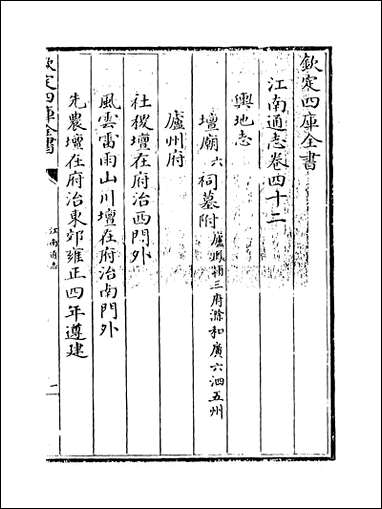 欽定四庫全書
江南通志卷四十二
輿地志
壇廟六 祠墓附 廬鳳潁三府滁和廣六泗五州
廬州府
社稷壇在府治西門外
風雲雷雨山川壇在府治南門外
先農壇在府治東郊雍正四年遵建
欽定四庫全書
江南通志
一